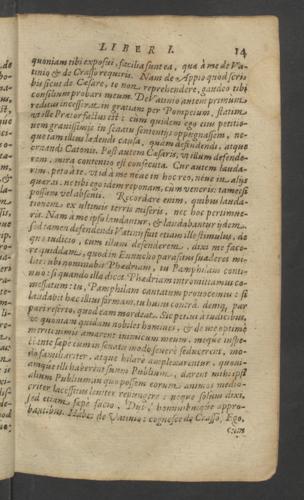 LIBER I. 14
quoniam tibi exposui, facilia sunt ea, quæ à me de Va-
tinio & de Crasso requiris. Nam de Appio quod scri-
bis sicut de Cæsare, te non reprehendere, gaudeo tibi
consilium probari meum. De Vatinio autem primum
reditus intesserat in gratiam per Pompeium, statim
vt ille Prætor factus est: cum quidem ego eius petitio-
nem grauissimis in senatu sententiis oppugnassem, ne-
que tam illius lædendi causa, quàm defendendi, atque
ornandi Catonis. Post autem Cæsaris, vt illum defende-
rem, mira contentio est consecuta. Cur autem lauda-
rim, peto à te, vt id à me neue in hoc reo, neue in aliis
quæras, ne tibi ego idem reponam, cum veneris: tametsi
possum vel absenti. Recordare enim, quibus lauda-
tionem ex vltimis terris miseris, nec hoc pertimue-
ris. Nam à me ipsi laudantur, & laudabuntur iidem.
sed tamen defendendi Vatinij fuit etiam ille stimulus, de
quo iudicio, cum illum defenderem, dixi me face-
re quiddam, quod in Eunucho parasitus suaderet mi-
liti: vbi nominabit Phædriam, tu Pamphilam conti-
nuò: si quando illa dicet Phædriam intromittamus co-
messatum: tu, Pamphilam cantatum prouocemus: si
laudabit hæc illius formam, tu huius contrà. denique, par
pari referto, quod eam mordeat. Sic petiui à iudicibus,
vt quoniam quidam nobiles homines, & de me optimè
meriti nimis amarent inimicum meum, meque inspe-
ctante sæpe eum in senatu modò seuerè seducerent, mo-
dò familiariter, atque hilarè amplexarentur, quoni-
amque illi haberent suum Publium, darent mihi ipsi
alium Publium, in quo possem eorum animos medio-
criter lacessitus leuiter repungere: neque solùm dixi,
sed etiam sæpe facio, Diis hominibusque appro-
bantibus. Habes de Vatinio: cognosce de Crasso. Ego,
cùm